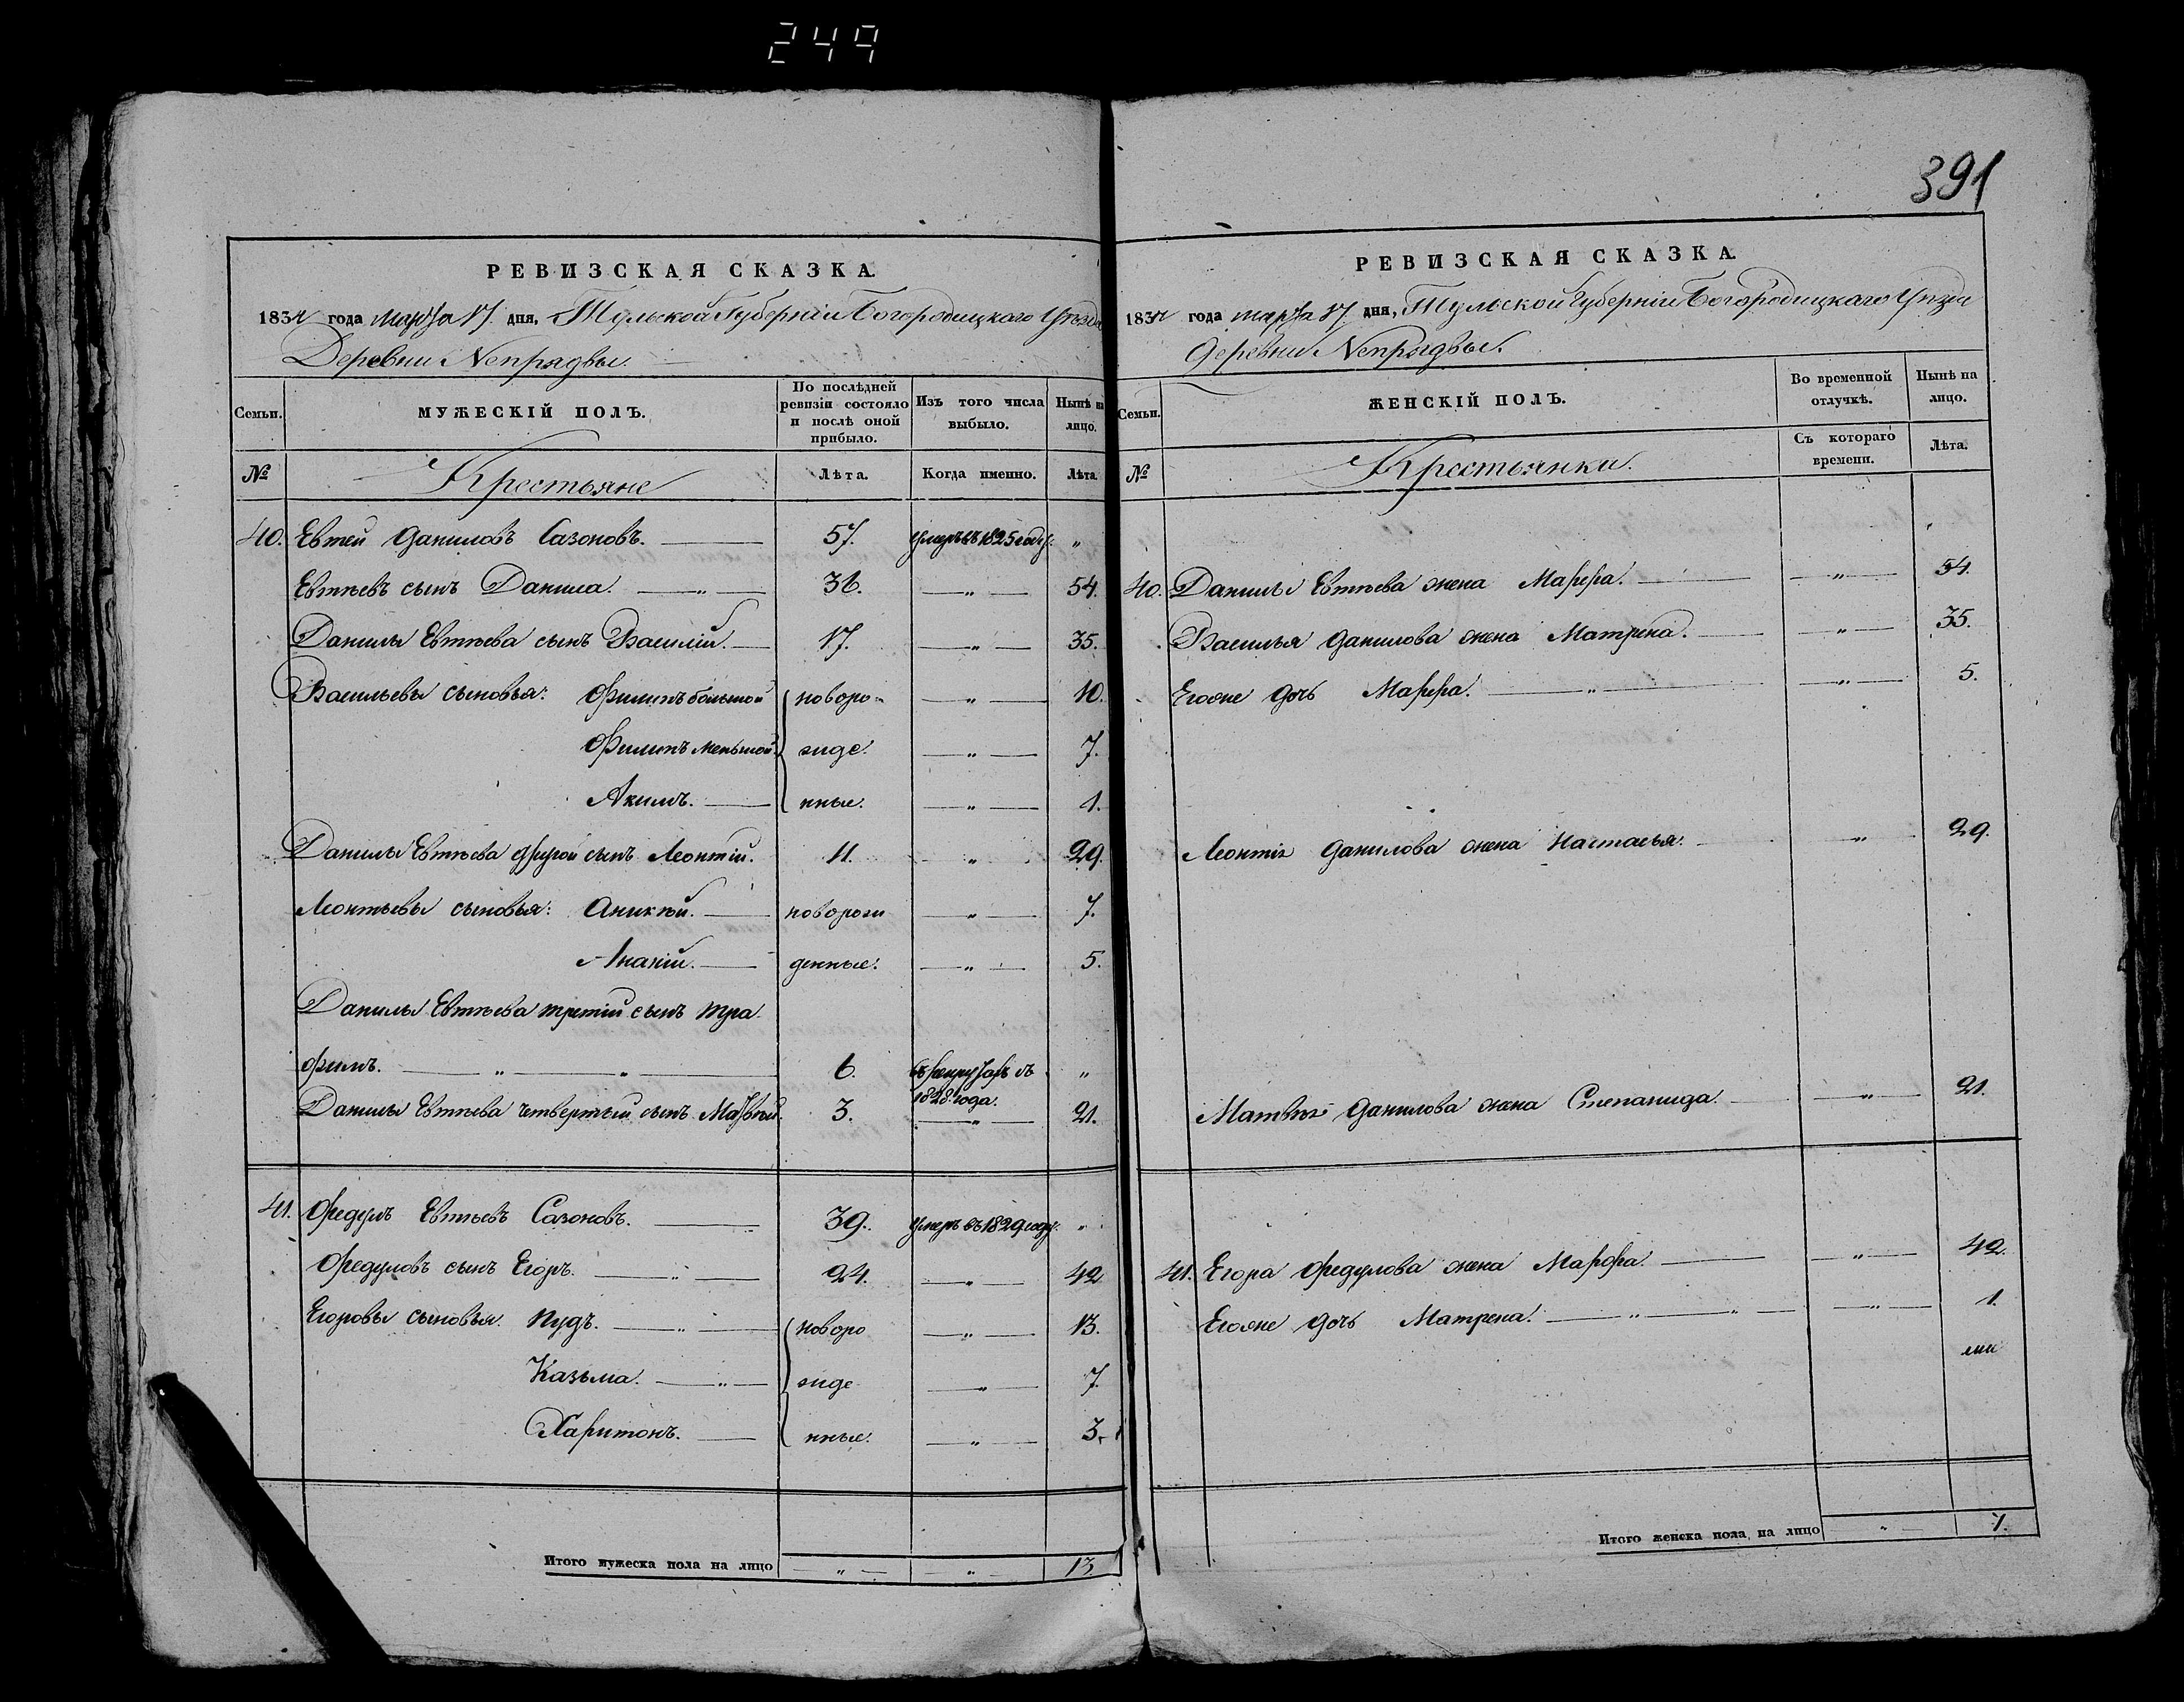 249
391
РЕВИЗСКАЯ СКАЗКА.
1834 года марта 17. дня, Тульской Губерніи Богородицкаго Уѣзда
Деревни Непрядвы.
Семьи. МУЖЕСКІЙ ПОЛЪ. По послѣдней ревизіи состояло и послѣ оной прибыло. Изъ того числа выбыло. Нынѣ на лицо.
№ Крестьяне Лѣта. Когда именно. Лѣта.
40. Евтей Даниловъ Сазоновъ. 57. умеръ въ 1825 году. „
Евтѣевъ сынъ Данила. „ 36. „ 54.
Данилы Евтѣева сынъ Василій. 17. „ 35.
Васильевы сыновья: Филипъ большой новоро- „ 10.
Филипъ меньшой. жде. „ 7.
Акимъ. нные. „ 1.
Данилы Евтѣева другой сынъ Леонтій. 11. „ 29.
Леонтьевы сыновья: Аникѣй. новорож „ 7.
Ананій. денные. „ 5.
Данилы Евтѣева третій сынъ Тра
фимъ. „ „ 6. въ рекрутахъ съ 1828 года. „
Данилы Евтѣева четвертый сынъ Матвѣй. 3. „ 21.
41. Федулъ Евтѣевъ Сазоновъ. 39. умеръ въ 1829 году. „
Федуловъ сынъ Егоръ. „ 24. „ 42
Егоровы сыновья. Пудъ. „ новоро „ 13.
Казьма. „ жде „ 7.
Харитонъ. нные. „ 3.
Итого мужеска пола на лицо „ „ 13.
РЕВИЗСКАЯ СКАЗКА.
1834 года марта 17. дня, Тульской Губерніи Богородицкаго Уѣзда
деревни Непрядвы.
Семьи. ЖЕНСКІЙ ПОЛЪ. Во временной отлучкѣ. Нынѣ на лицо.
№ Крестьянки. Съ котораго времени. Лѣта.
40. Данилы Евтѣева жена Марфа. „ 54.
Василья Данилова жена Матрена. „ 35.
Егоже дочь Марфа. „ „ 5.
Леонтія Данилова жена Настасья. „ 29.
Матвѣя Данилова жена Степанида. „ 21.
41. Егора Федулова жена Марфа. „ 42.
Егоже дочь Матрена. „ „ „ 1.
Итого женска пола на лицо „ 7.